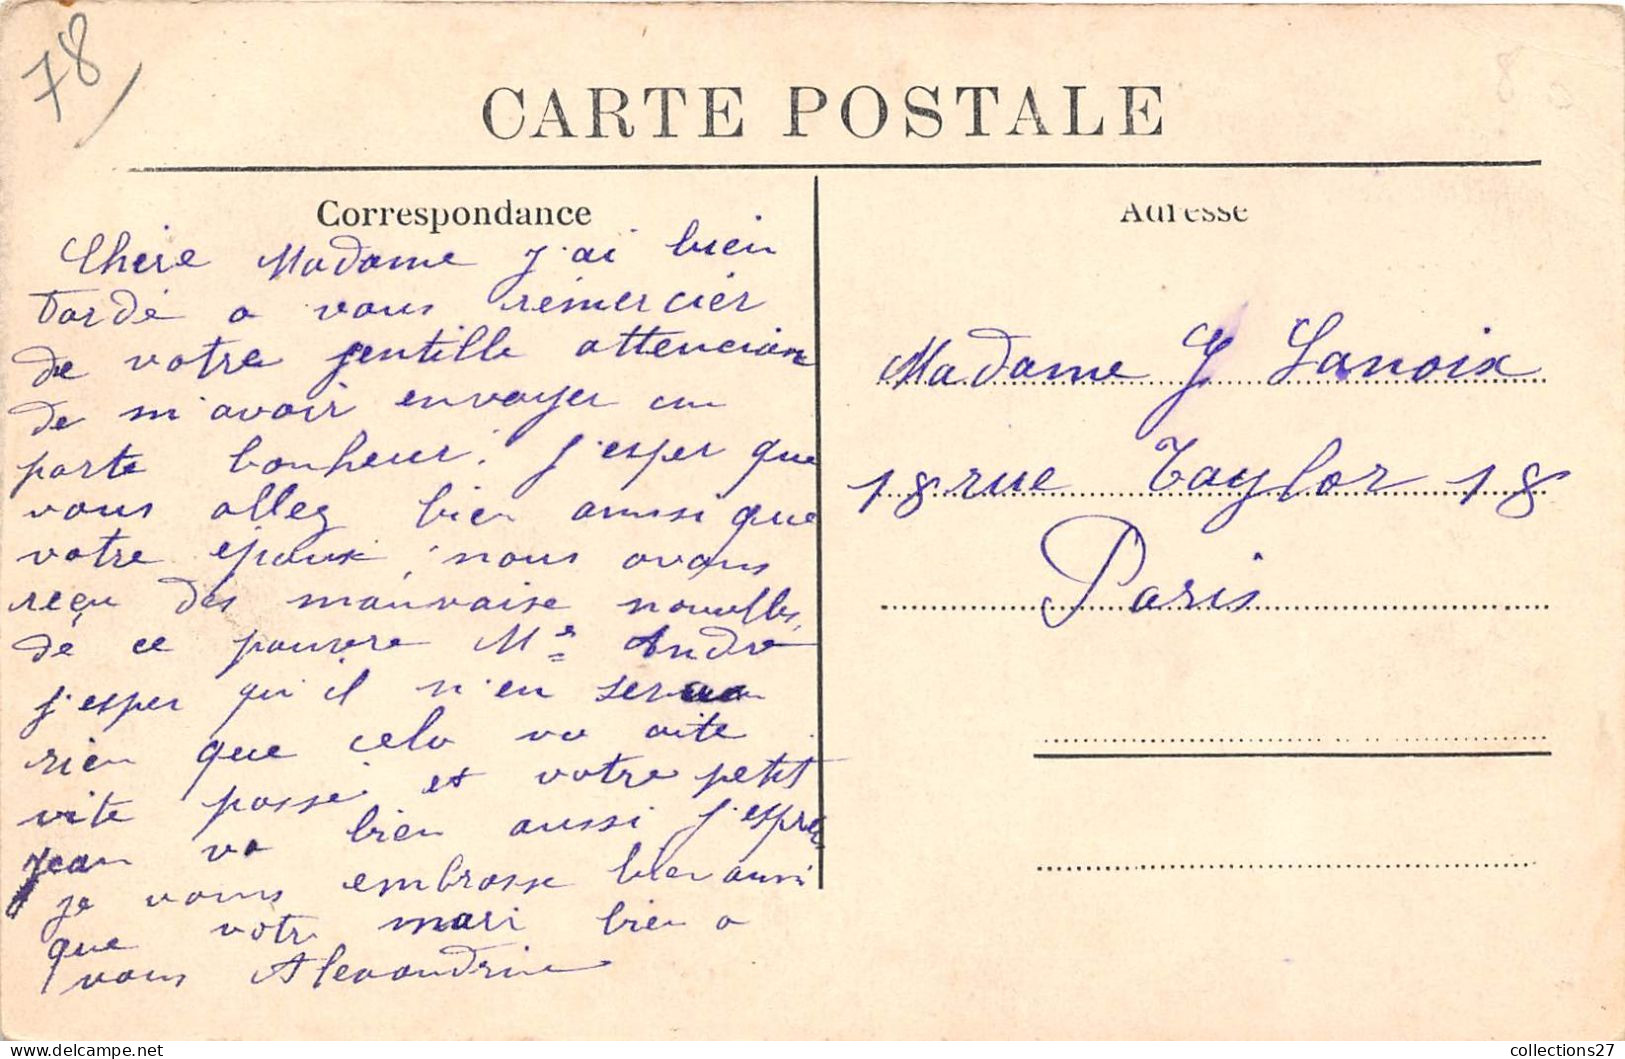 78
CARTE POSTALE
Correspondance
Adresse
Chère Madame j'ai bien
tardé a vous remercier
de votre gentille attencion
de m'avoir envoyer un
porte bonheur. j'esper que
vous allez bien aussi que
votre epoux, nous avons
reçu des mauvaise nouvelles
de ce pauvre Mr André
j'esper qu'il n'en sera
rien que cela va vite
vite passé et votre petit
jean va bien aussi j'esper
je vous embrasse bien aussi
que votre mari bien a
vous Alexandrine
Madame J Lanoix
18 rue Taylor 18
Paris
collections27